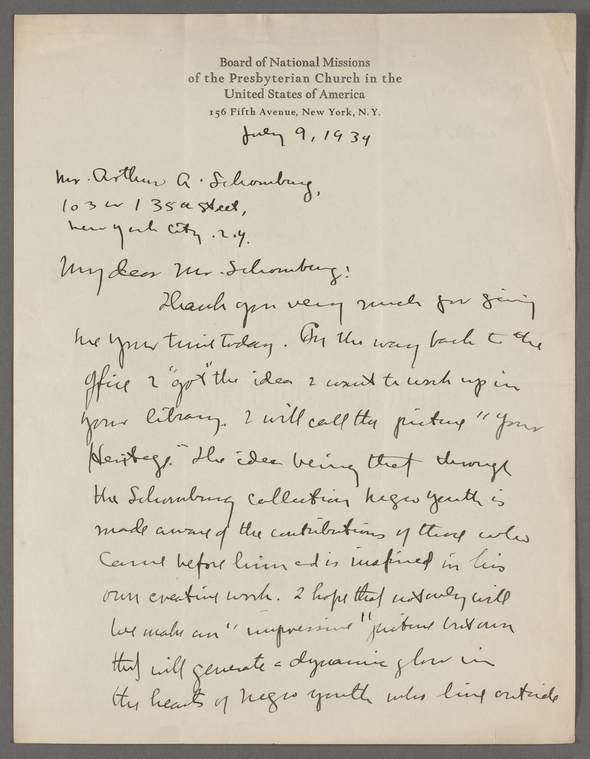 Board of National Missions
of the Presbyterian Church in the
United States of America
156 Fifth Avenue, New York, N.Y.
July 9, 1934
Mr. Arthur A. Schomburg,
103 W 135th Street,
New York City. N.Y.
My dear Mr. Schomburg:
Thank you very much for giving
me your time today. On the way back to the
office I "got" the idea I want to work up in
your library. I will call the picture "Your
Heritage." The idea being that through
the Schomburg collection Negro youth is
made aware of the contributions of those who
came before him and is inspired in his
own creative work. I hope that not only will
we make an "impressive" picture but one
that will generate a dynamic glow in
the hearts of Negro youth who live outside